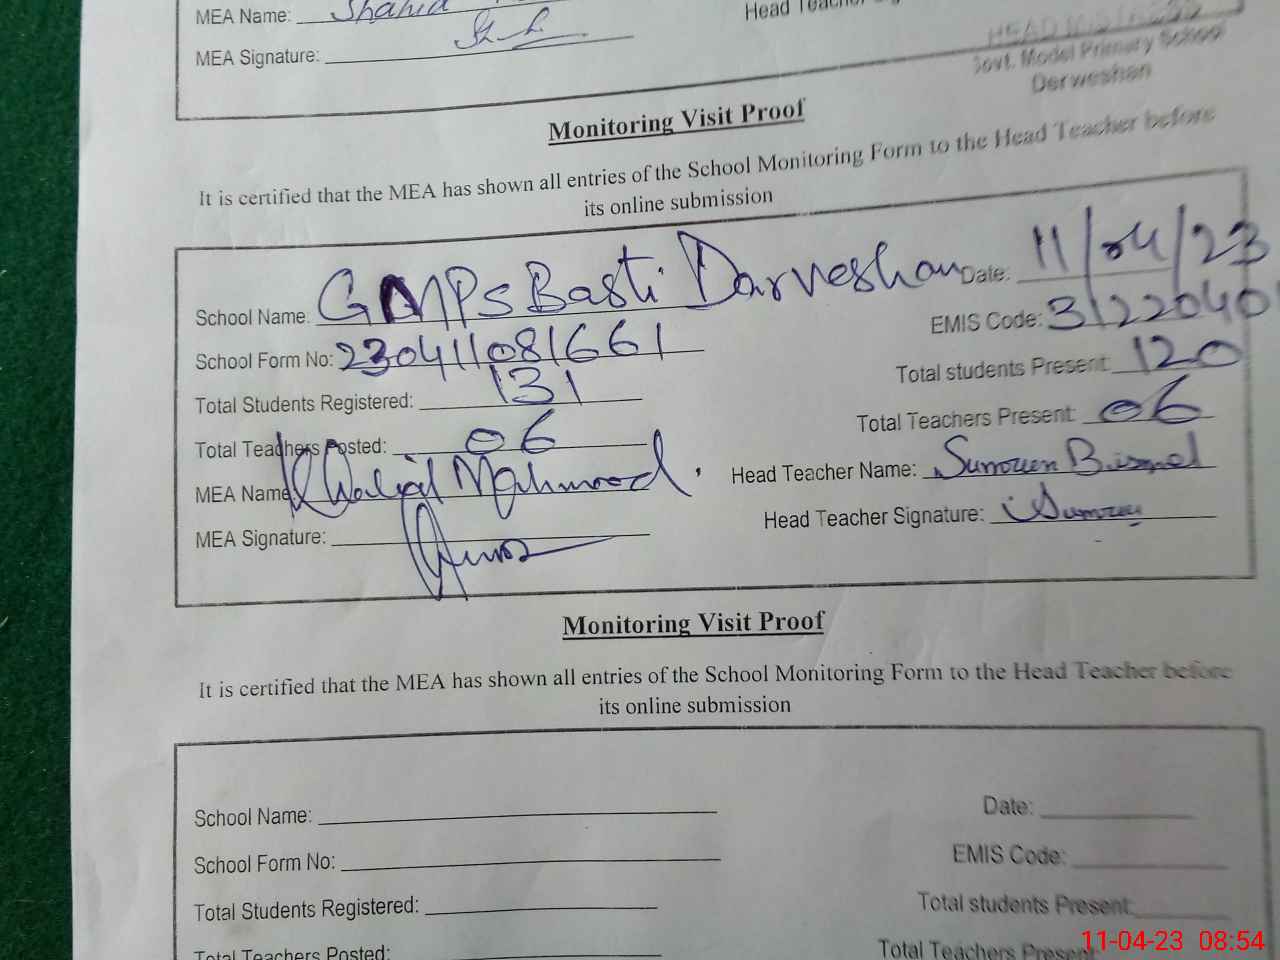 MEA Name: Shahid
Head Teacher
MEA Signature:
HEAD MISTRESS
Govt. Model Primary School
Derweshan
Monitoring Visit Proof
It is certified that the MEA has shown all entries of the School Monitoring Form to the Head Teacher before
its online submission
School Name: GMPS Basti Darveshan Date: 11/04/23
School Form No: 230411081661 EMIS Code: 3122040
Total Students Registered: 131 Total students Present: 120
Total Teachers Posted: 06 Total Teachers Present: 06
MEA Name: Khalid Mahmood Head Teacher Name:
MEA Signature: Head Teacher Signature:
Monitoring Visit Proof
It is certified that the MEA has shown all entries of the School Monitoring Form to the Head Teacher before
its online submission
School Name: Date:
School Form No: EMIS Code:
Total Students Registered: Total students Present:
Total Teachers Posted: Total Teachers Present
11-04-23 08:54